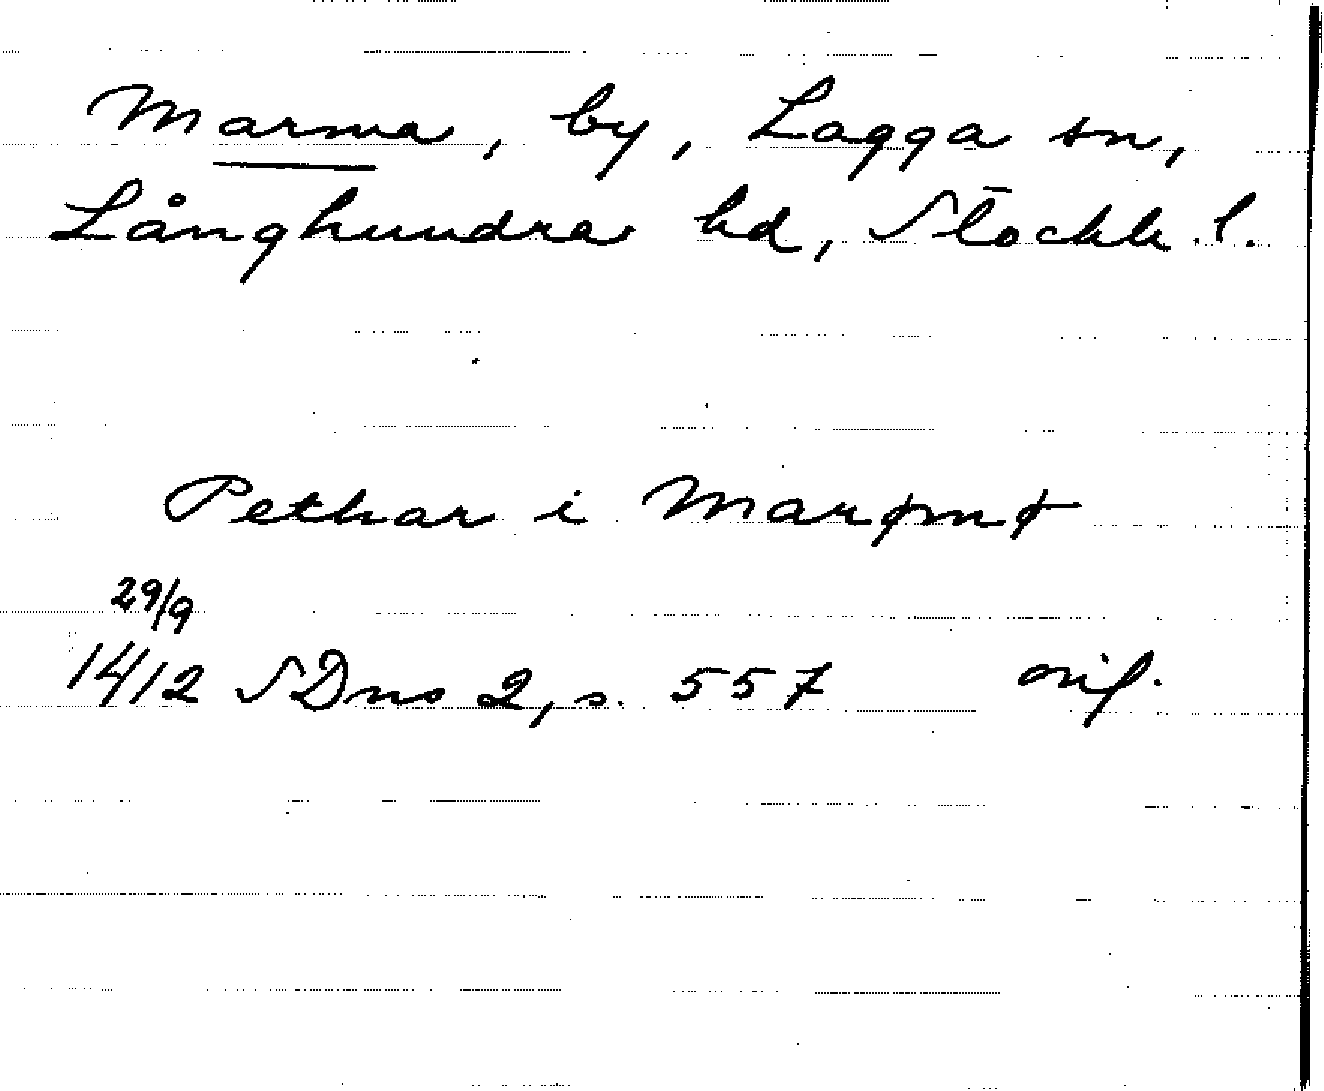 Marma, by, Lagga sn,
Långhundra hd, Stockh. l.
Pethar i Marømø
29/9
1412 SDns 2, s. 557 orig.